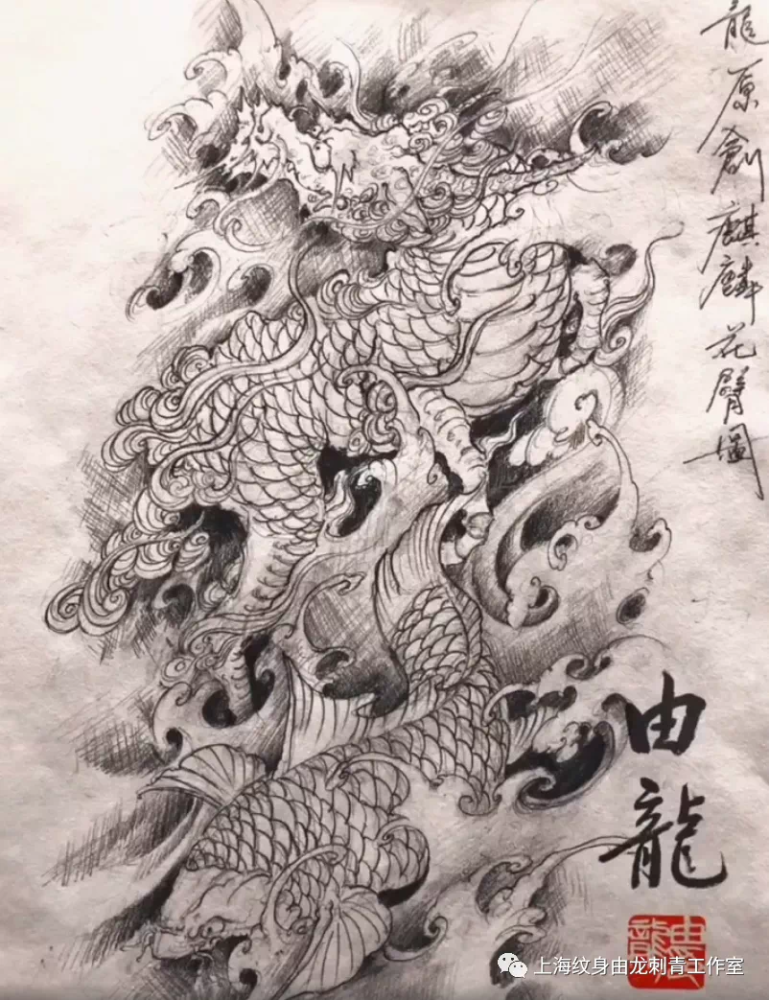 龍原創麒麟花臂圖
由龍
由龍
上海纹身由龙刺青工作室